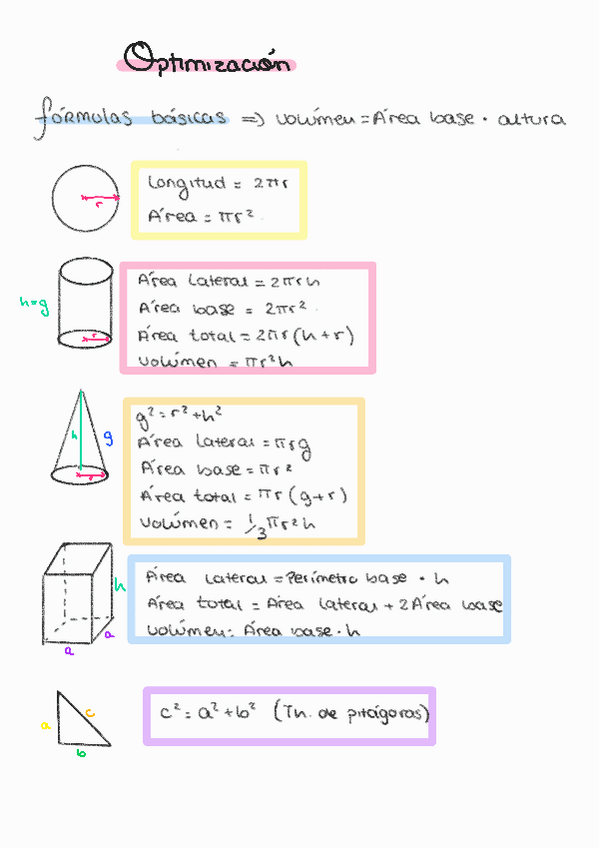 Optimización
fórmulas básicas => volúmen = Área base · altura
r
Longitud = 2πr
Área = πr²
h=g
r
Área lateral = 2πrh
Área base = 2πr²
Área total = 2πr(h+r)
volúmen = πr²h
h
g
r
g² = r² + h²
Área lateral = πrg
Área base = πr²
Área total = πr(g+r)
volúmen = 1/3πr²h
h
a
a
Área lateral = Perímetro base · h
Área total = Área lateral + 2Área base
volúmen: Área base · h
a
c
b
c² = a² + b² (Tn. de pitágoras)